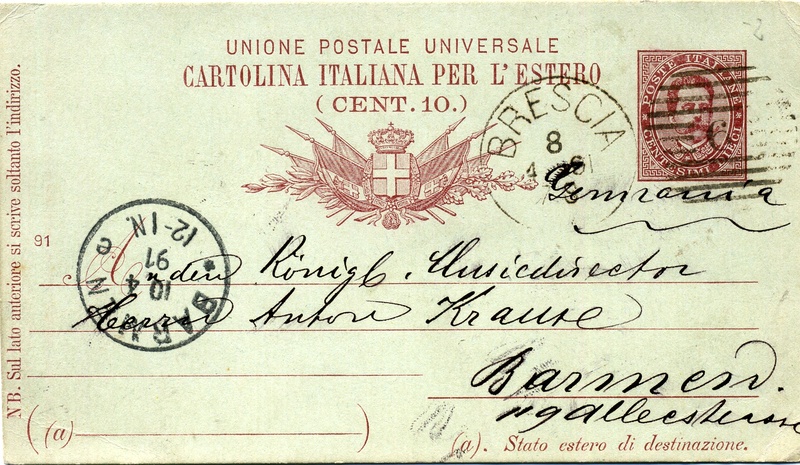 UNIONE POSTALE UNIVERSALE
CARTOLINA ITALIANA PER L'ESTERO
(CENT. 10.)
POSTE ITALIANE
CENTESIMI DIECI
BRESCIA
8
4
91
6
Germania
BARMEN
10 4
91
12-1N.
e
91
An den Königl. Musicdirector
Herrn Anton Krause
Barmen.
Alleestrasse
(a)
(a). Stato estero di destinazione.
NB. Sul lato anteriore si scrive soltanto l'indirizzo.